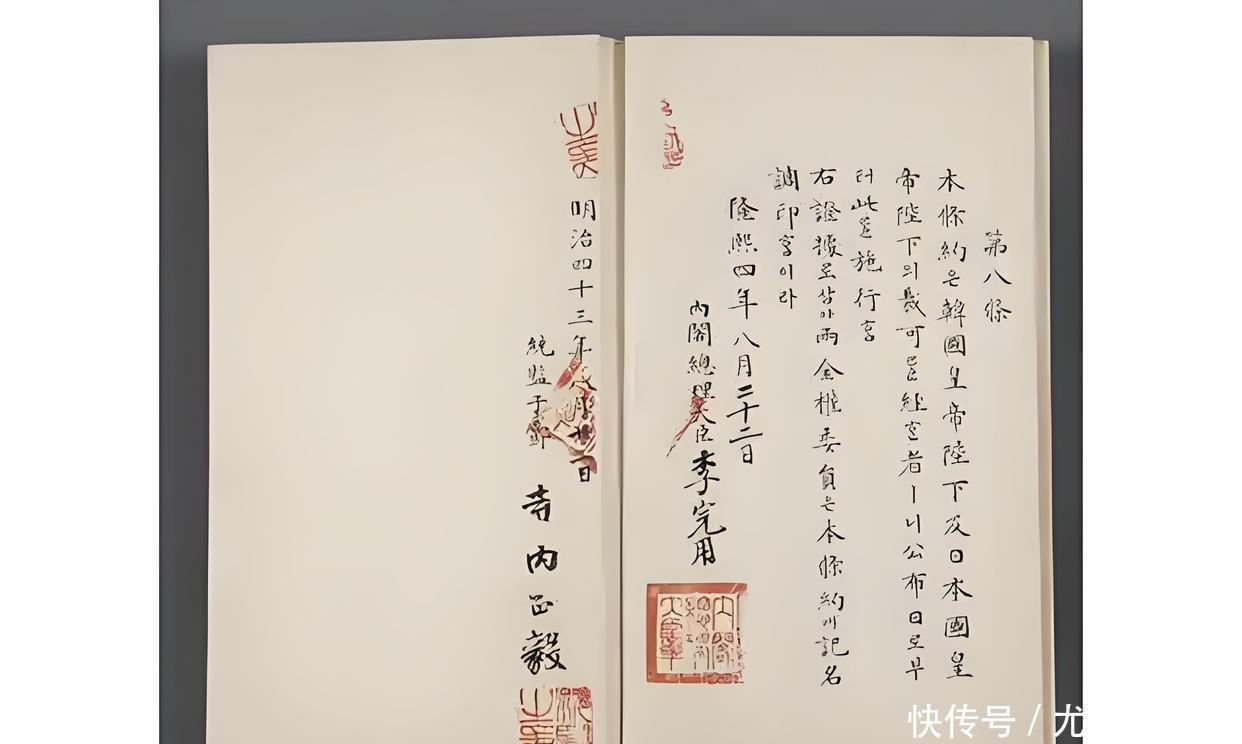 第八條
本條約은韓國皇帝陛下及日本國皇
帝陛下의裁可를經ᄒᆞᆫ者ㅣ니公布日로부
터此를施行홈
右證據로삼아兩全權委員은本條約에記名
調印홈이라
隆熙四年八月二十二日
內閣總理大臣 李完用
明治四十三年八月廿二日
統監子爵 寺內正毅
快传号/尤